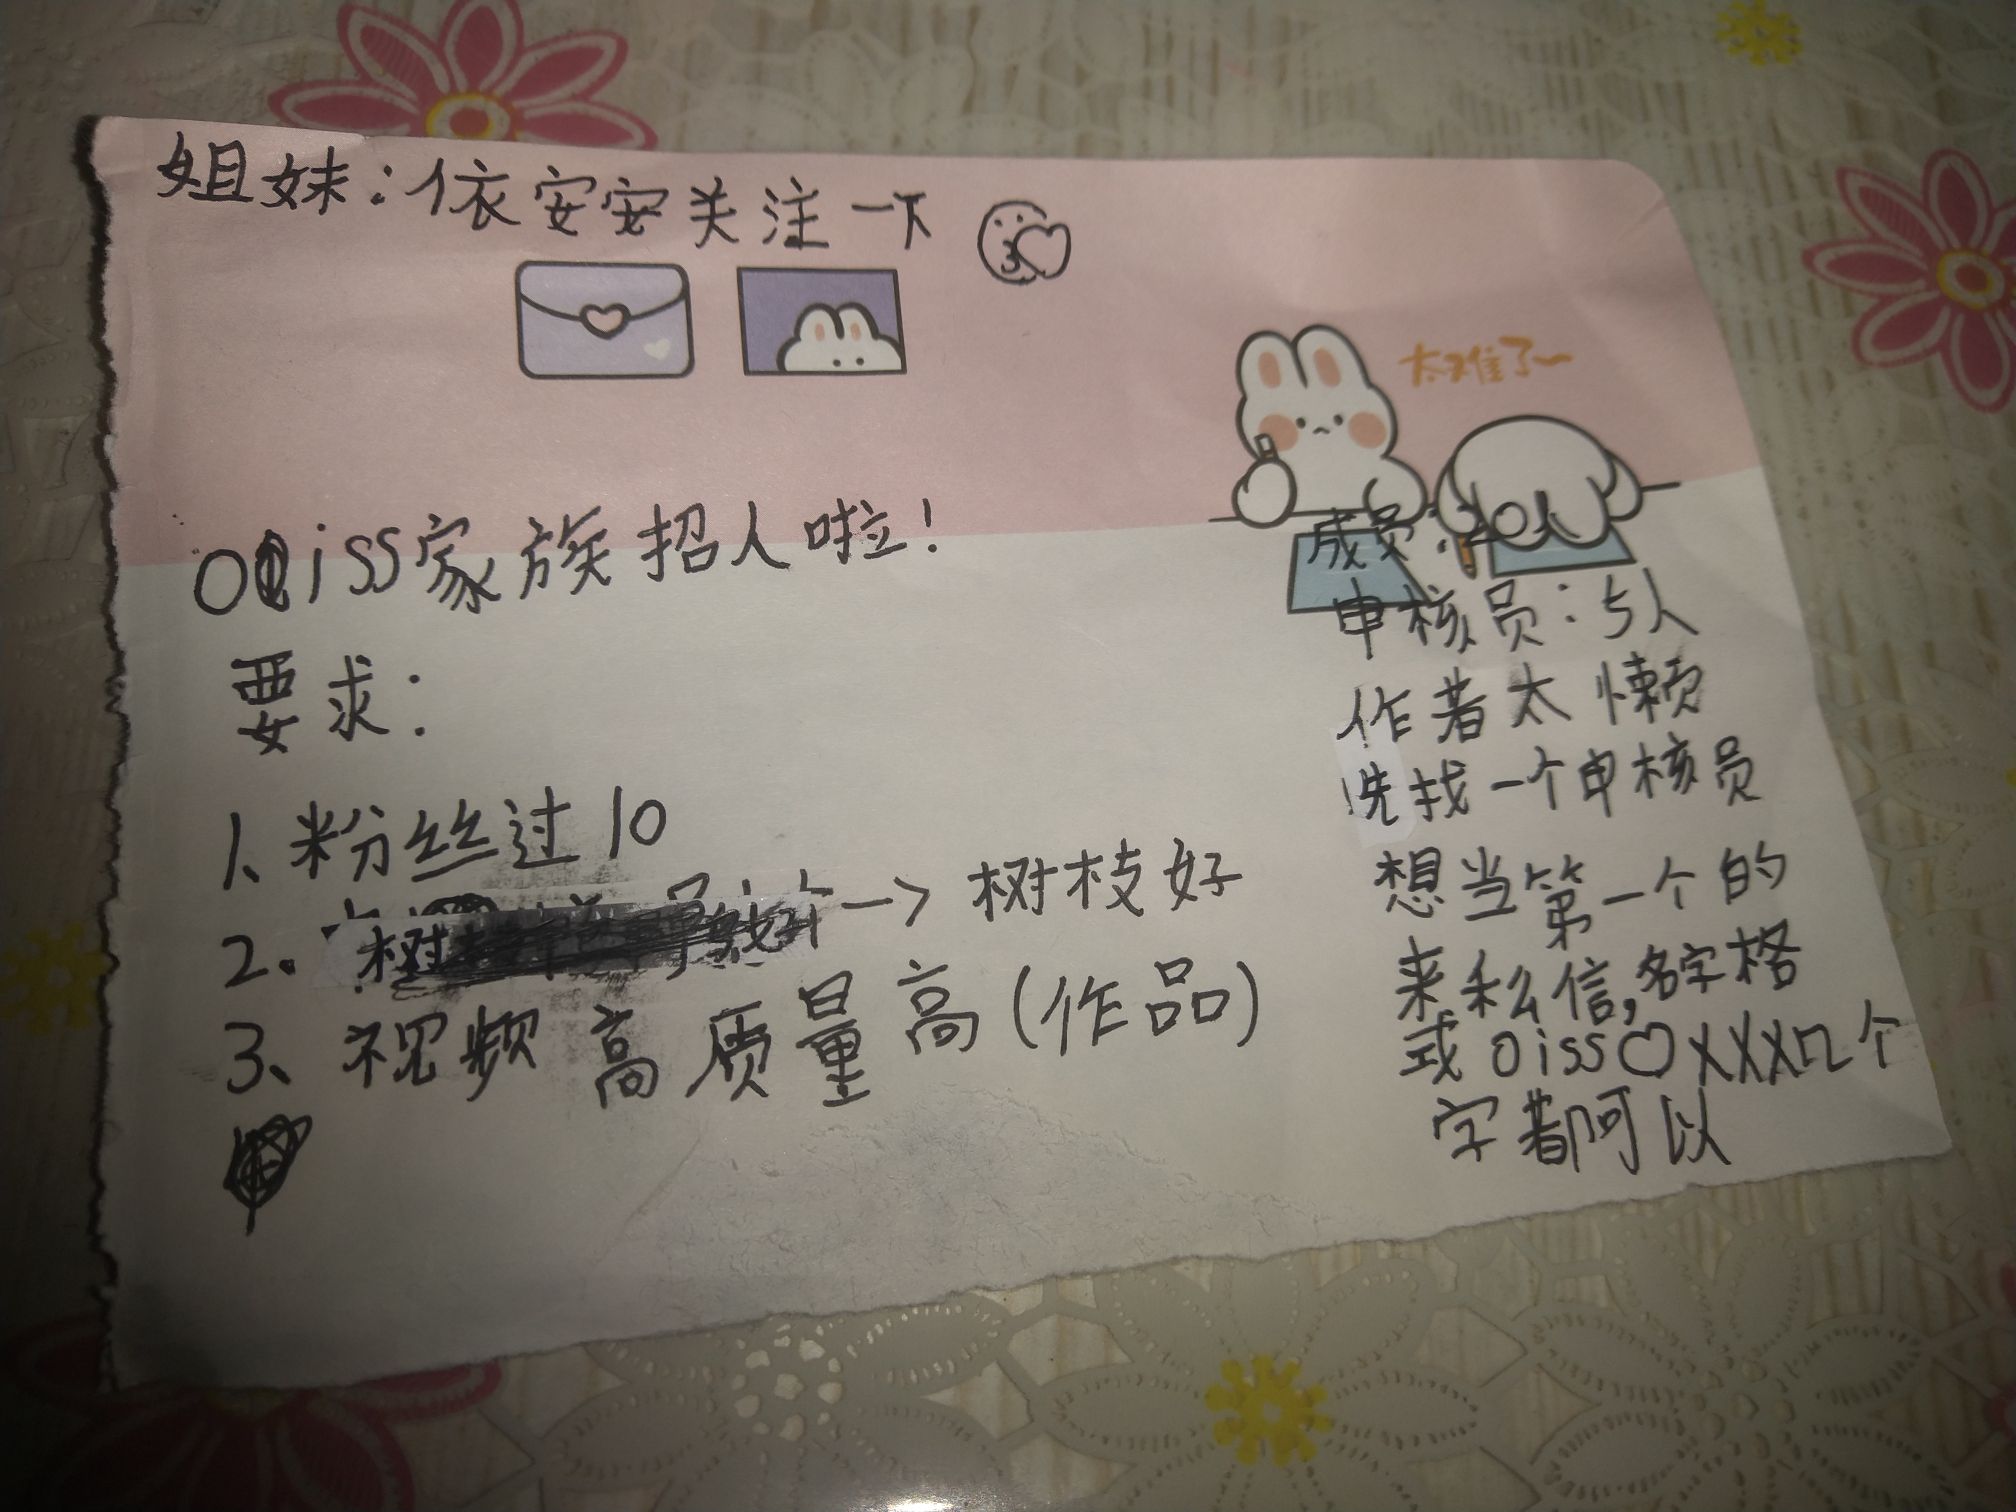 姐妹:依安安关注一下
太难了~
Oiss家族招人啦!
要求:
1、粉丝过10
2. 树 好 —> 树枝好
3、视频高质量高(作品)
成员:20人
审核员:5人
作者太懒
先找一个审核员
想当第一个的
来私信,名字格
式oiss♡XXX几个
字都可以